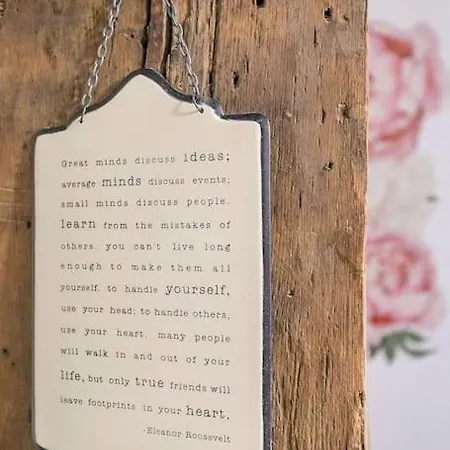 Great minds discuss ideas;
average minds discuss events;
small minds discuss people.
learn from the mistakes of
others. you can't live long
enough to make them all
yourself. to handle yourself,
use your head; to handle others,
use your heart. many people
will walk in and out of your
life, but only true friends will
leave footprints in your heart.
-Eleanor Roosevelt